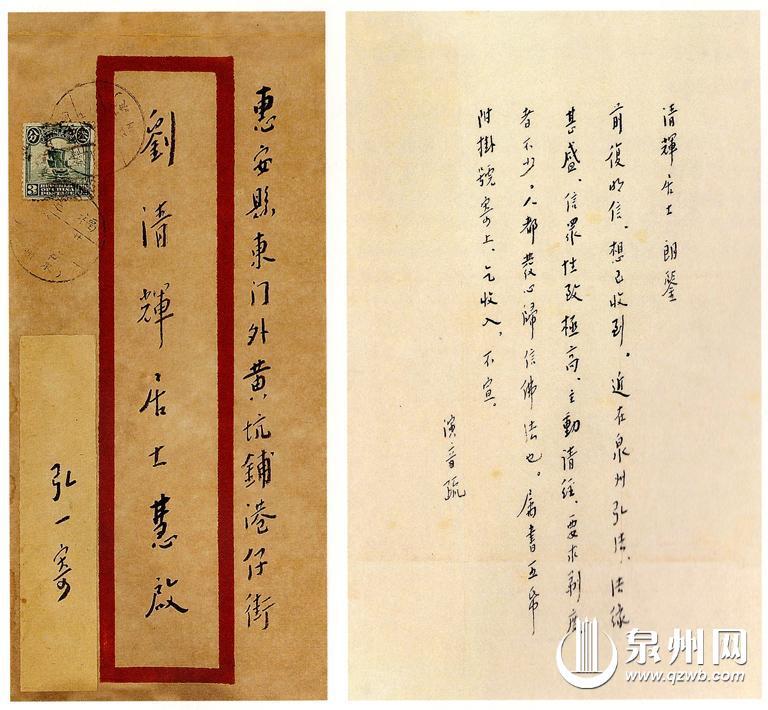 惠安縣東门外黄坑鋪港仔街
劉清輝居士慧啟
弘一寄
3
清輝居士 朗鑒
前復明信、想已收到。近在泉州弘法、法缘
甚盛、信眾性致極高、主動請経、要求剃度
者不少。人都發心歸信佛法也。属書五帋
附掛號寄上、乞收入、不宣。
演音疏
泉州网
www.qzwb.com